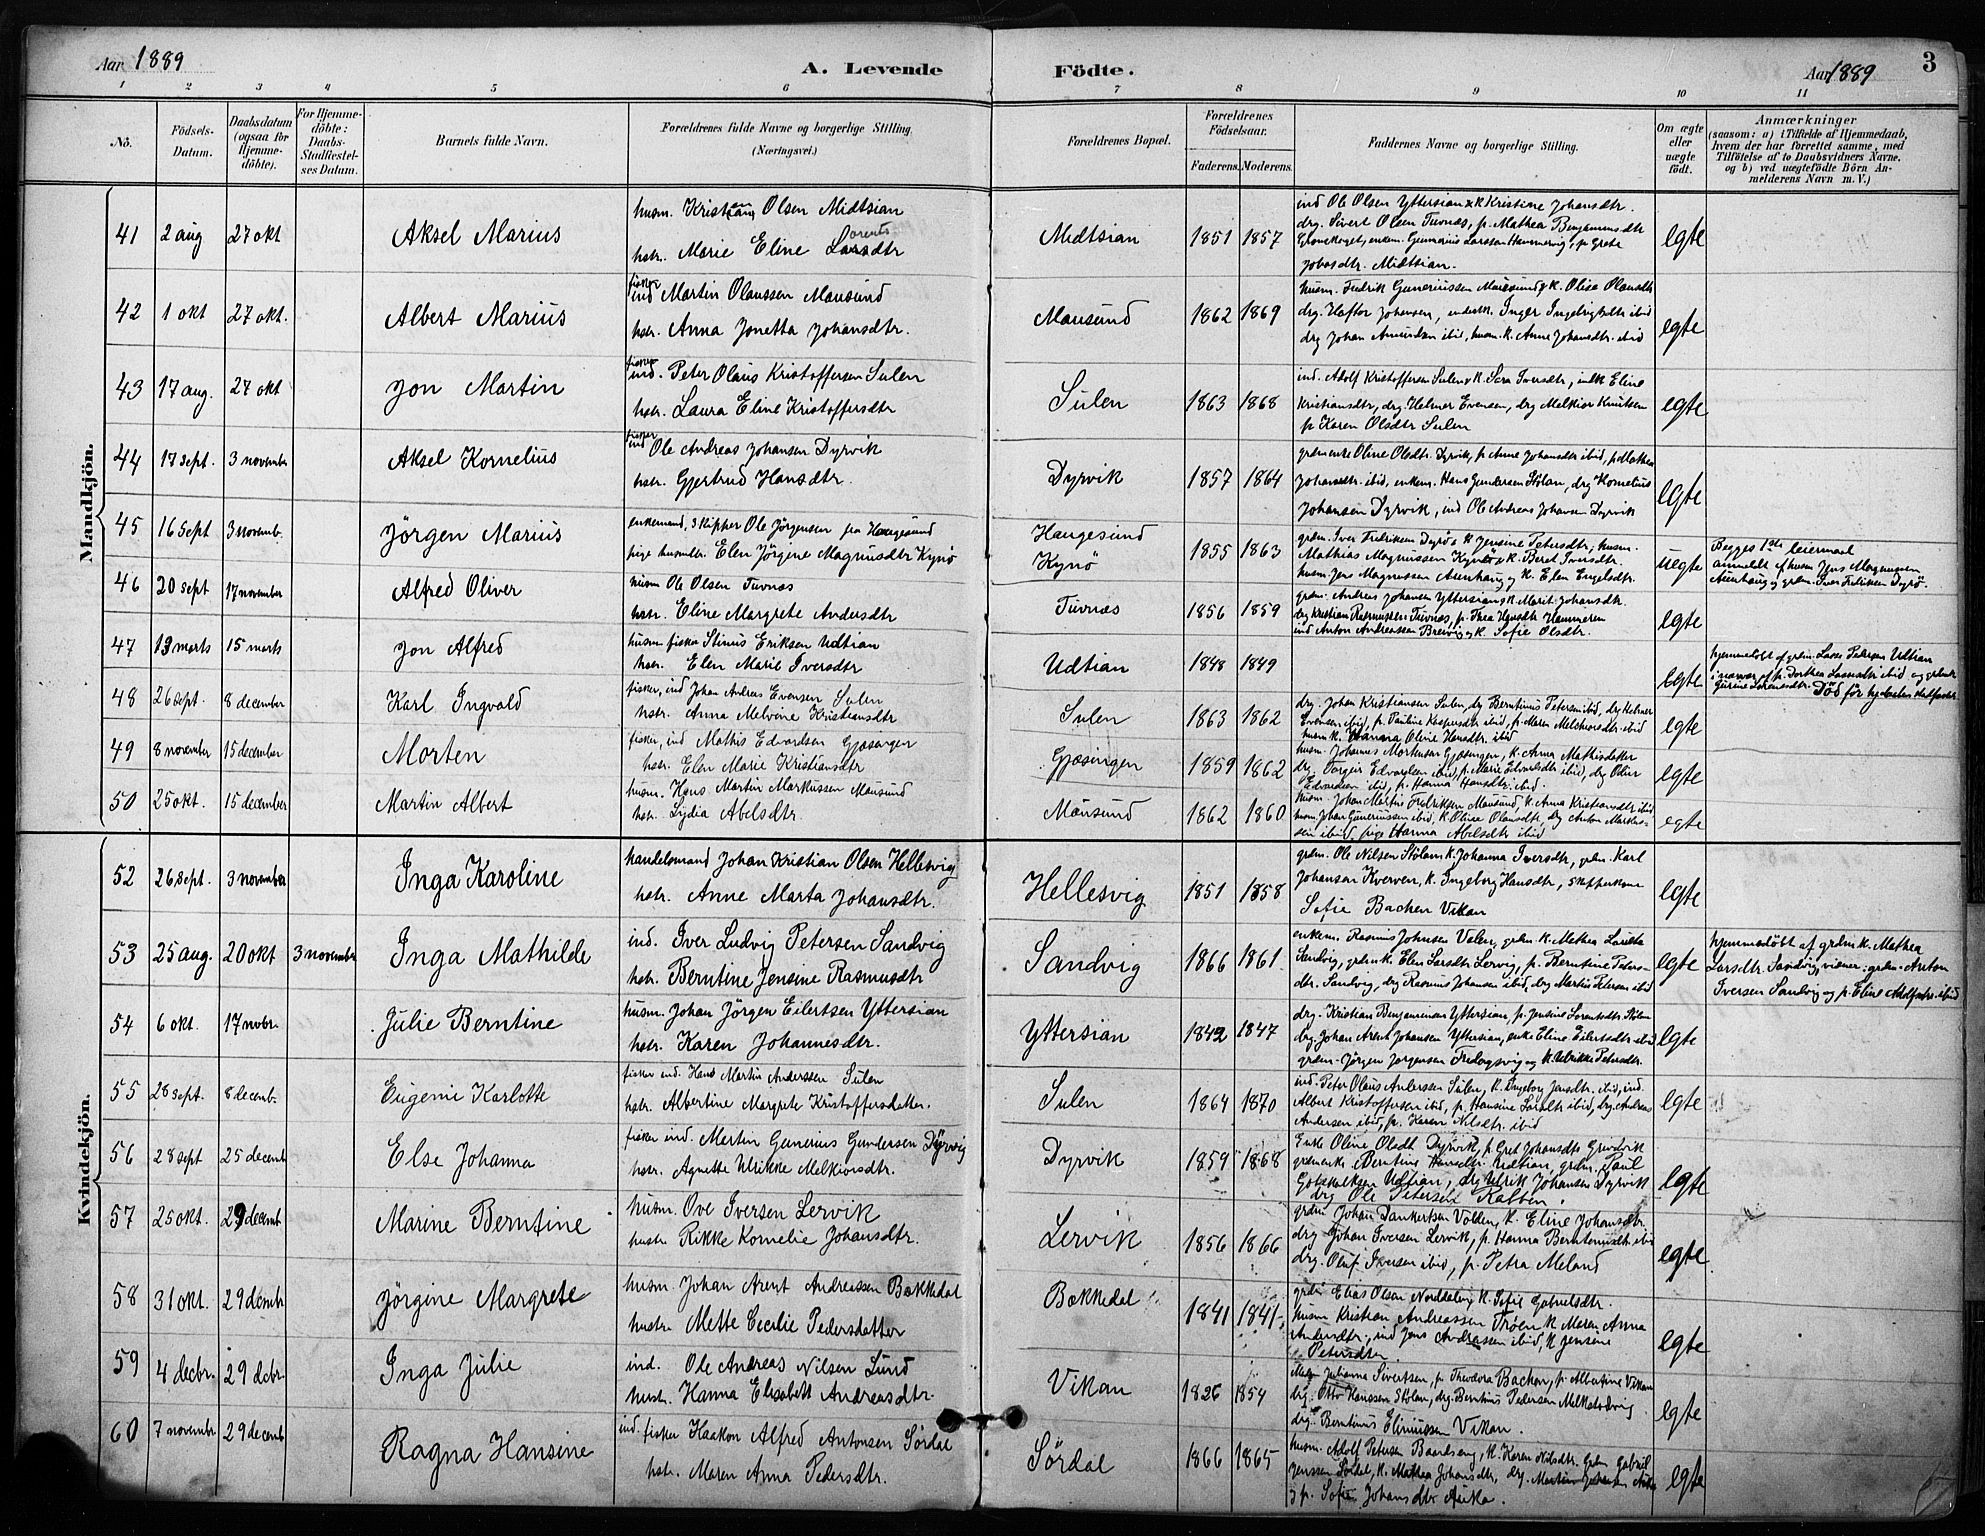 Aar 1889
A. Levende Födte.
Aar 1889
3
1 2 3 4 5 6 7 8 9 10 11
No.
Födsels-Datum.
Daabsdatum (ogsaa for Hjemme-döbte).
For Hjemme-döbte: Daabs-Stadfæstel-ses Datum.
Barnets fulde Navn.
Forældrenes fulde Navne og borgerlige Stilling. (Næringsvei.)
Forældrenes Bopæl.
Forældrenes Födselsaar.
Faderens. Moderens.
Faddernes Navne og borgerlige Stilling.
Om ægte eller uægte födt.
Anmærkninger
(saasom: a) i Tilfælde af Hjemmedaab,
hvem der har forrettet samme, med
Tilföielse af to Daabsvidners Navne,
og b) ved uægtefödte Börn An-
melderens Navn m. V.)
Mandkjön.
41 2 aug 27 okt Aksel Marius
husm. Kristian Olsen Midtsian
hstr. Marie Eline Lorentsdtr
Midtsian 1851 1857
ind Ole Olsen Yttersian & K Kristine Johansdtr.
drg. Sivert Olsen Tuvnæs, p. Mathea Benjaminsdtr
Midtsian.
egte
42 1 okt 27 okt. Albert Marius
fisker ind Martin Olaussen Mausund
hstr. Anna Jonetta Johansdtr.
Mausund 1862 1869
husm. Fredrik Guneriussen Mausund & K. Olise Olausdtr
drg Johan Amundsen ibid, husm. K. Anne Johansdtr. ibid
egte
43 17 aug. 27 okt Jon Martin
fisker ind. Peter Olaus Kristoffersen Sulen
hstr. Laura Eline Kristoffersdtr
Sulen 1863 1868
ind. Adolf Kristoffersen Sulen & K. Sara Iversdtr, indk Eline
Kristiansdtr, drg. Helmer Evensen, drg Melkior Knutsen
p Karen Olsdtr Sulen
egte
44 17 sept. 3 november Aksel Kornelius
fisker ind Ole Andreas Johansen Dyrvik
hstr. Gjertrud Hansdtr.
Dyrvik 1857 1864
grdm enke Oline Olsdtr. Dyrvik, p. Anne Johansdtr ibid, p Mathea
Johansdtr. ibid, enkem. Hans Gundersen Stölan, drg Kornelius
Johansen Dyrvik, ind Ole Andreas Johansen Dyrvik
egte
45 16 sept 3 novemb. Jörgen Marius
enkemand, Skipper Ole Jörgensen fra Haugesund
pige husmdtr. Elen Jörgine Magnusdtr Kynö
Haugesund
Kynö
1855 1863
grdm. Iver Fredriksen Dyrö & K Jensine Petersdtr, husm.
Mathias Magnussen Kynö & K. Beret Iversdtr.
husm Jens Magnussen Aunhaug og K. Elen Engelsdtr.
uegte
Begges 1ste leiermaal
anmeldt af husm Jens Magnussen
Aunhaug og grdm. Iver Fredriksen Dyrö.
46 20 sept 17 november Alfred Oliver
husm Ole Olsen Tuvnæs
hstr. Eline Margrete Andersdtr
Tuvnæs 1856 1859
grdm. Andreas Johansen Yttersian & K Marit Johansdtr.
drg Kristian Rasmussen Tuvnæs, p. Thea Hansdtr Hammeren
ind Anton Andreassen Breivig & K. Sofie Olsdtr.
egte
47 13 marts 15 marts Jon Alfred
husm fisker Stinus Eriksen Udtian
hstr. Elen Marie Iversdtr
Udtian 1848 1849
egte
hjemmedöbt af grdm. Lasse Petersen Udtian
48 26 sept. 8 december Karl Ingvald
fisker, ind Johan Andreas Evensen Sulen
hstr. Anna Melvine Kristiansdtr
Sulen 1863 1862
drg. Johan Kristiansen Sulen, drg Berntinus Petersen ibid, drg Helmer
Evensen ibid, p. Pauline Kaspersdtr ibid, p. Maren Melchiorsdtr ibid
husm K. Hanna Oline Hansdtr ibid
egte
49 8 november 15 december Morten
fisker, ind Mathis Edvardsen Gjæsingen
hstr. Elen Marie Kristiansdtr
Gjæsingen 1859 1862
husm. Johannes Mortensen Gjæsingen, K. Anna Mathisdatter
drg Torgeir Edvardsen ibid, p. Marie Edvardsdtr ibid, drg Odin
Edvardsen ibid, p. Hanna Hansdtr. ibid.
egte
50 25 okt. 15 december Martin Albert
husm. Hans Martin Markussen Mausund
hstr. Lydia Abelsdtr.
Mausund 1862 1860
husm. Johan Martin Fredriksen Mausund, K. Anna Kristiansdtr ibid
husm Johan Gunerinssen ibid K. Olise Olausdtr, drg Anton Markus-
sen ibid, pige Hanna Abelsdtr ibid
egte
Kvindekjön.
52 26 sept. 3 november Inga Karoline
handelsmand Johan Kristian Olsen Hellesvig
hstr. Anne Marta Johansdtr.
Hellesvig 1851 1858
grdm. Ole Nilsen Stölan K. Johanna Iversdtr, grdm. Karl
Johansen Kverven, K. Ingeborg Hansdtr, Skipperkone
Sofie Bachen Vikan
egte
53 25 aug. 20 okt 3 november Inga Mathilde
ind. Iver Ludvig Petersen Sandvig
hstr. Berntine Jensine Rasmusdtr
Sandvig 1866 1861
enkem. Rasmus Johnsen Valen, grdm. K. Mathea Larsdtr
Sandvig, grdm K. Elen Larsdtr Lervig, p. Berntine Peters-
dtr. Sandvig, drg Rasmus Johansen ibid, drg Martin Petersen ibid
egte
hjemmedöbt af grdm K. Mathea
Larsdtr. Sandvig, vidner: grdm. Anton
Iversen Sandvig og p. Eline Adolfsdtr. ibid
54 6 okt. 17 novbr. Julie Berntine
husm. Johan Jörgen Eilertsen Yttersian
hstr. Karen Johannesdtr.
Yttersian 1842 1847
drg. Kristian Benjaminsen Yttersian, p. Jensine Lorentsdtr Stölan
drg. Johan Arent Johansen Yttersian, enke Eline Eilertsdtr ibid
grdm. Jörgen Jörgensen Fredagsvig og K. Ulrikke Petersdtr.
egte
55 28 sept. 8 decemb. Eugemi Karlotte
fisker ind. Hans Martin Anderssen Sulen
hstr. Albertine Margrete Kristoffersdatter.
Sulen 1864 1870
ind. Peter Olaus Anderssen Sulen, K. Ingeborg Jensdtr. ibid, ind.
Albert Kristoffersen ibid, p. Hansine Larsdtr ibid, drg. Andreas
Andersen ibid, p. Karen Nilsdtr. ibid
egte
56 28 sept 25 decemb Else Johanna
fisker ind. Martin Gunerius Gundersen Dyrvig
hstr. Agnette Ulrikke Melkiorsdtr.
Dyrvik 1859 1868
Enke Oline Olsdtr Dyrvik, p. Gret Johansdtr Grindvik
grdm enke Berntine Hansdtr. Udtian, grdm. Paul
Gotskalksen Udtian, drg Ulrik Johansen Dyrvik
drg Ole Petersen Kalven.
egte
57 25 okt. 29 decemb Marine Berntine
husm. Ove Iversen Lervik
hustr. Rikke Kornelie Johansdtr.
Lervik 1856 1866
grdm Johan Dankertsen Volden, K. Eline Johansdtr.
drg Johan Iversen Lervik, p. Hanna Berntinusdtr ibid
drg. Oluf Iversen ibid, p. Petra Meland
egte
58 31 okt. 29 decmbr Jörgine Margrete
husm. Johan Arent Andreassen Bækkedal
hustr. Mette Cecilie Pedersdatter
Bækkedal 1841 1841
grdm Elias Olsen Norddalen, K. Sofie Gabrielsdtr.
husm Kristian Andreassen Trøen K. Maren Anna
Andersdtr., ind Jens Andreassen ibid, K. Jensine
Petersdtr.
egte
59 4 decbr. 29 dcbr. Inga Julie
ind. Ole Andreas Nilsen Lund
hustr. Hanna Elisabeth Andreasdtr.
Vikan 1826 1854
Johanna Sivertsen, p. Theodora Bachen, p. Albertine Vikan
drg. Otto Hanssen Stölan, drg. Berntinus Pedersen
drg. Berntinus Elinussen Vikan.
egte
60 7 novembr. 29 decemb Ragna Hansine
ind. fisker Haakon Alfred Antonsen Sördal
hstr. Maren Anna Pedersdtr.
Sördal 1866 1865
husm. Adolf Petersen Baadseng, K. Karen Nilsdtr. Grdm Gabriel
Jenssen Sördal, K. Mathea Johansdtr, drg. Martin Johansen
p. Sofie Johansdtr Auka.
egte